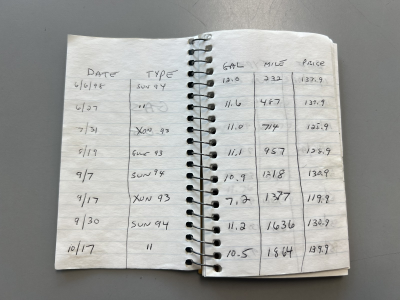 DATE TYPE GAL MILE PRICE
6/6/98 SUN 94 12.0 232 137.9
6/27 " 11.6 487 137.9
7/21 XON 93 11.0 714 125.9
8/19 SUN 93 11.1 957 128.9
9/7 SUN 94 10.9 1218 130.9
9/17 XON 93 7.2 1377 119.9
9/30 SUN 94 11.2 1636 130.9
10/17 " 10.5 1864 139.9